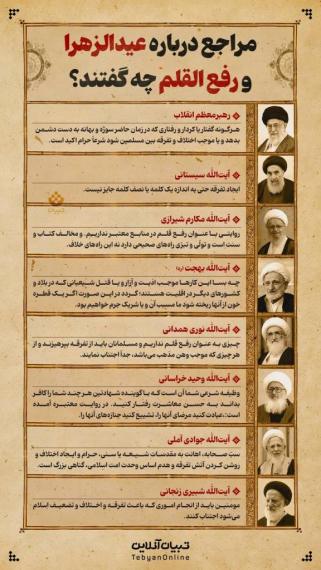 مراجع درباره عیدالزهرا
و رفع القلم چه گفتند؟
رهبر معظم انقلاب
هرگونه گفتار یا کردار و رفتاری که در زمان حاضر سوژه و بهانه به دست دشمن
بدهد و یا موجب اختلاف و تفرقه بین مسلمین شود شرعاً حرام اکید است.
آیت‌الله سیستانی
ایجاد تفرقه حتی به اندازه یک کلمه یا نصف کلمه جایز نیست.
تبیان
آیت‌الله مکارم شیرازی
روایتی با عنوان رفع قلم در منابع معتبر نداریم. و مخالف کتاب و
سنت است و تولّی و تبرّی راه‌های صحیحی دارد نه این راه‌های خلاف.
آیت‌الله بهجت (ره)
چه بسا این کارها موجب اذیت و آزار و یا قتل شیعیانی که در بلاد و
کشورهای دیگر در اقلیت هستند؛ گردد در این صورت اگر یک قطره
خون از آنها ریخته شود ما سبب آن و یا شریک جرم خواهیم بود.
آیت‌الله نوری همدانی
چیزی به عنوان رفع قلم نداریم و مسلمانان باید از تفرقه بپرهیزند و از
هر چیزی که موجب وهن مذهب می‌باشد، جداً اجتناب نمایند.
آیت‌الله وحید خراسانی
وظیفه شرعی شما آن است که با گوینده شهادتین هر چند شما را کافر
بداند به حسن معاشرت رفتار کنید. در روایت معتبره آمده
است: عیادت کنید مرضای آنها را، تشییع کنید جنازه‌های آنها را.
آیت‌الله جوادی آملی
سبّ صحابه، اهانت به مقدسات شیعه یا سنی، حرام و ایجاد اختلاف و
روشن کردن آتش تفرقه و هدم اساس وحدت امت اسلامی، گناهی بزرگ است.
آیت‌الله شبیری زنجانی
مومنین باید از انجام اموری که باعث تفرقه و اختلاف و تضعیف اسلام
می‌شود اجتناب کنند.
تبیان آنلاین
TebyanOnline